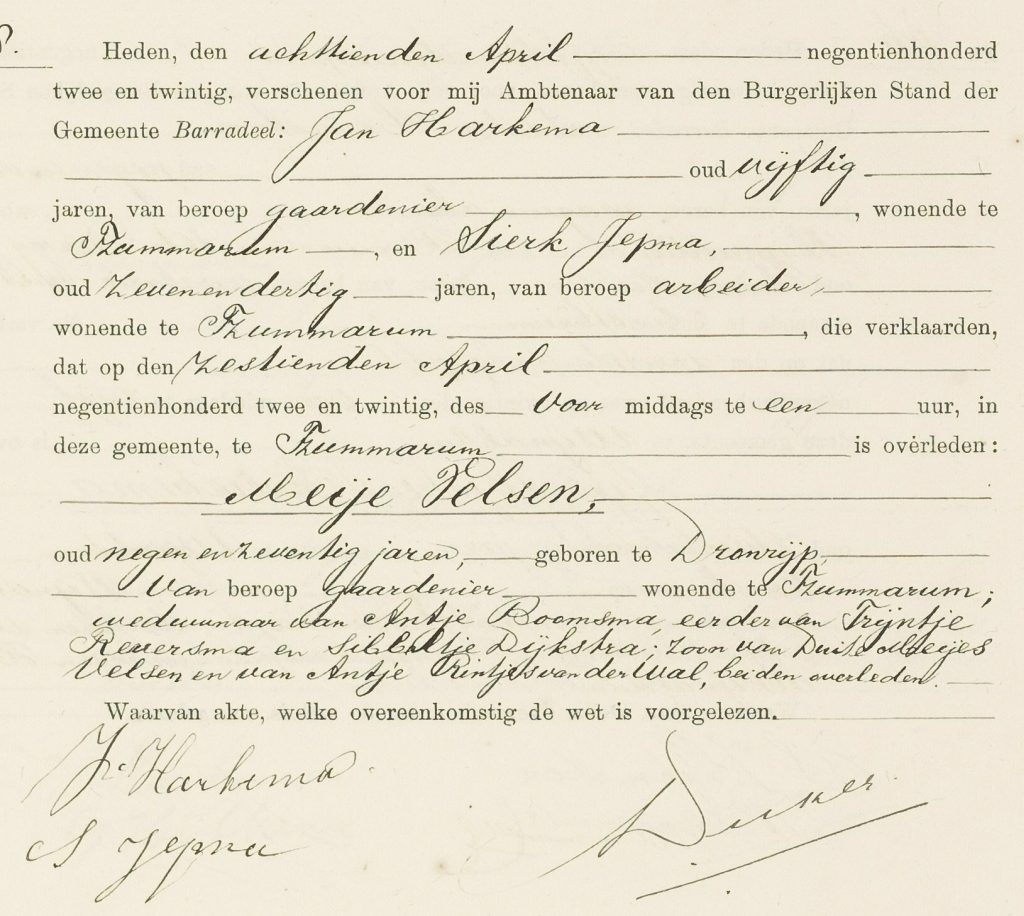 8.
Heden, den achttienden April negentienhonderd
twee en twintig, verschenen voor mij Ambtenaar van den Burgerlijken Stand der
Gemeente Barradeel: Jan Harkema
oud vijftig
jaren, van beroep gaardenier, wonende te
Tzummarum, en Sierk Jepma,
oud zevenendertig jaren, van beroep arbeider,
wonende te Tzummarum, die verklaarden,
dat op den zestienden April
negentienhonderd twee en twintig, des voor middags te een uur, in
deze gemeente, te Tzummarum is overleden:
Meije Velsen,
oud negen en zeventig jaren, geboren te Dronrijp,
van beroep gaardenier wonende te Tzummarum;
weduwnaar van Antje Boomsma, eerder van Trijntje
Reversma en Sibbeltje Dijkstra; zoon van Meijes
Velsen en van Antje Rintjes van der Wal, beiden overleden.
Waarvan akte, welke overeenkomstig de wet is voorgelezen.
J. Harkema
S Jepma
Duker